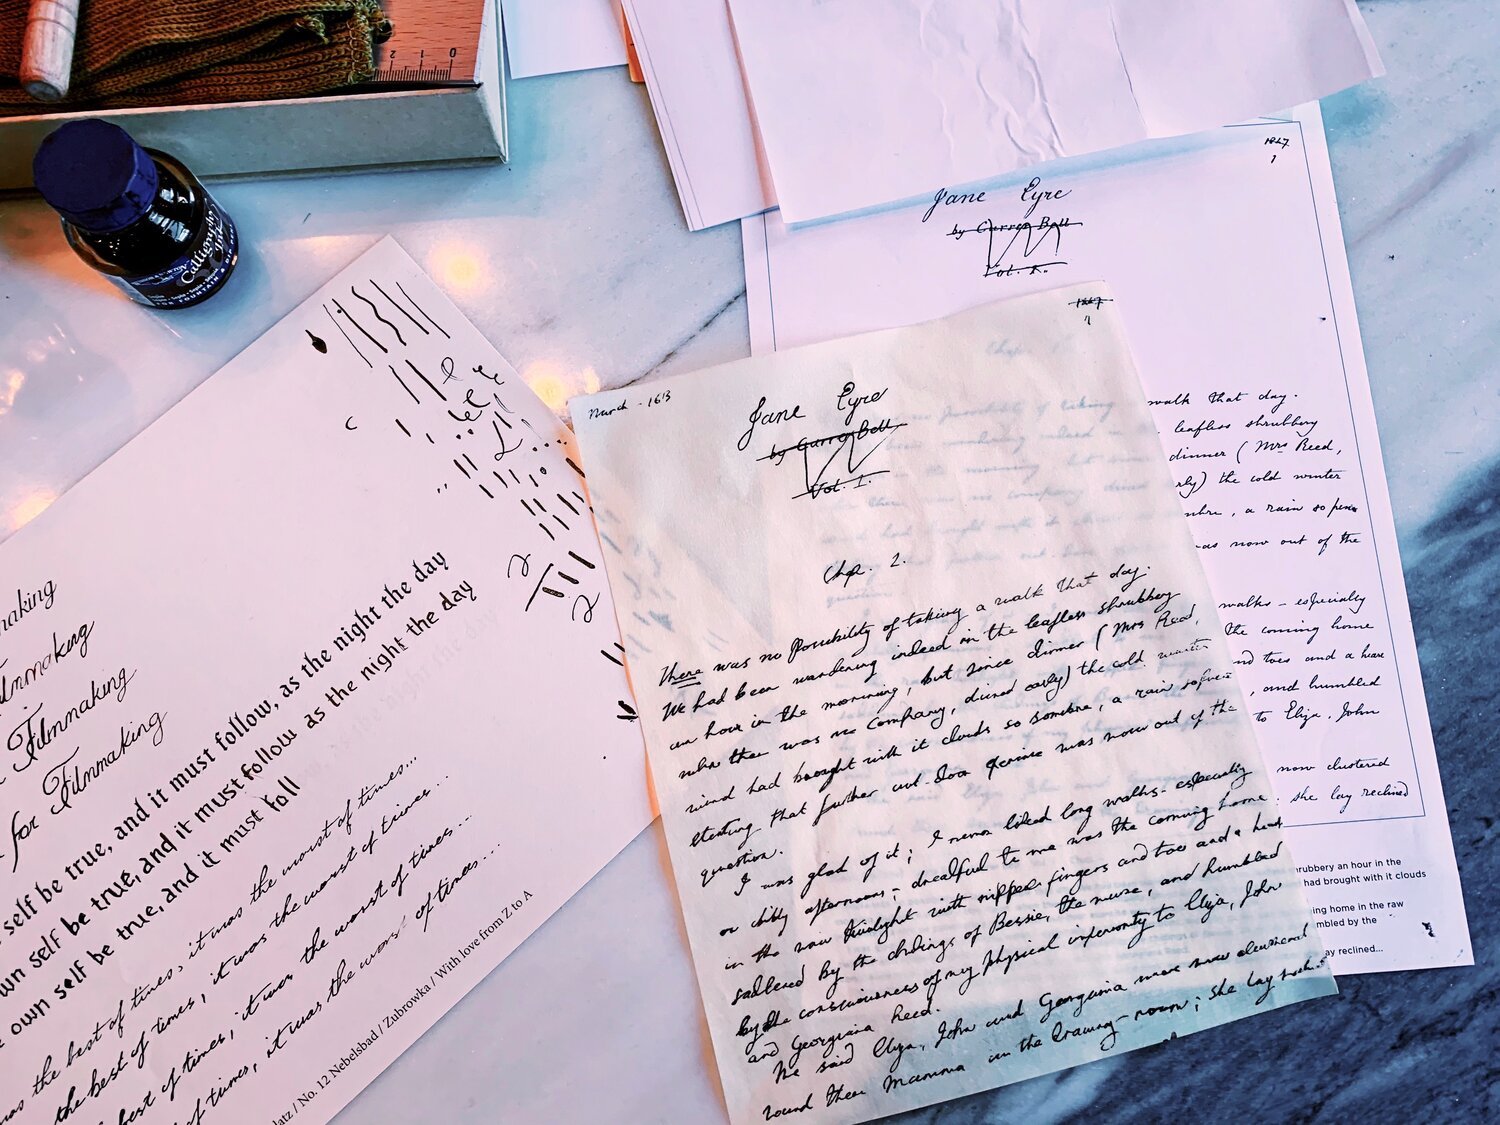 2 1 0
Calligraphy
Ink
FOR FOUNTAIN & DIP PEN
1847
1
Jane Eyre
by Currer Bell
Vol. I.
walk that day.
leafless shrubbery
dinner (Mrs Reed,
rly) the cold winter
mbre, a rain so pene
was now out of the
walks - especially
the coming home
nd toes and a hear
, and humbled
to Eliza, John
now clustered
she lay reclined
rubbery an hour in the
had brought with it clouds
ing home in the raw
mbled by the
ay reclined...
March - 1613
1847
1
Jane Eyre
by Currer Bell
Vol. I.
Chp. 2.
There was no possibility of taking a walk that day.
We had been wandering indeed in the leafless shrubbery
an hour in the morning, but since dinner (Mrs Reed,
when there was no company, dined early) the cold winter
wind had brought with it clouds so sombre, a rain so pene
etrating that further out-door exercise was now out of the
question.
I was glad of it; I never liked long walks - especially
on chilly afternoons; dreadful to me was the coming home
in the raw twilight with nipped fingers and toes and a hear
saddened by the chidings of Bessie, the nurse, and humbled
by the consciousness of my physical inferiority to Eliza, John
and Georgiana Reed.
The said Eliza, John and Georgiana were now clustered
round their Mamma in the drawing-room; she lay
making
Filmmaking
Filmmaking
for Filmmaking
self be true, and it must follow, as the night the day
wn self be true, and it must follow as the night the day
own self be true, and it must foll
was the best of times, it was the worst of times...
the best of times, it was the worst of times...
best of times, it was the worst of times...
of times, it was the worst of times...
latz / No. 12 Nebelsbad / Zubrowka / With love from Z to A